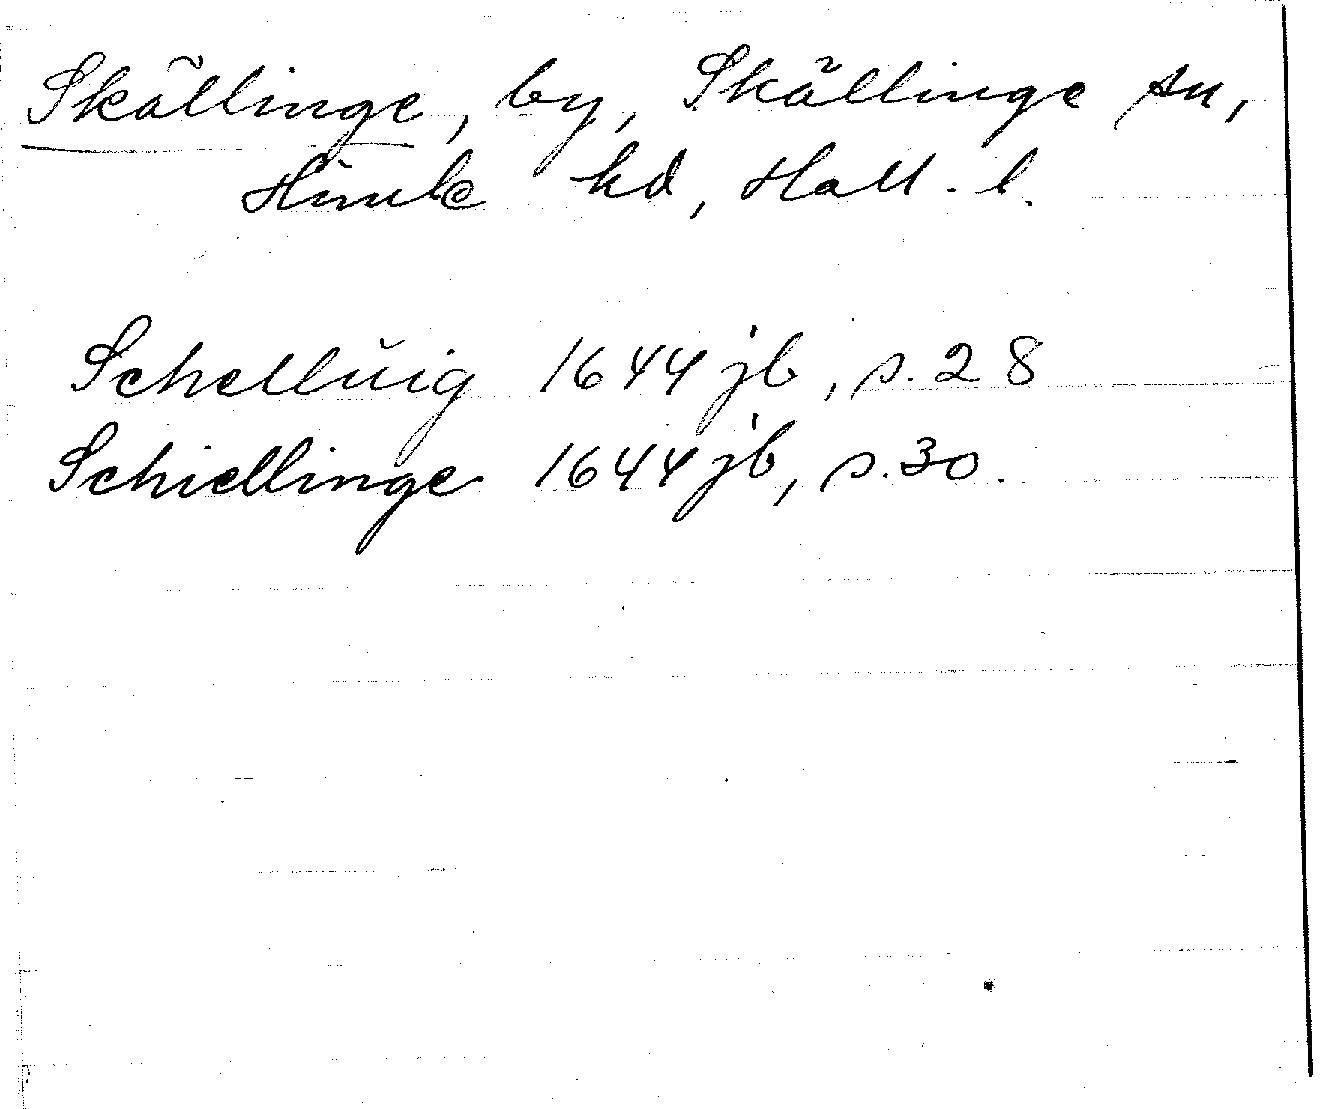 Skällinge, by, Skällinge sn,
Himle hd, Hall. l.
Schelluig 1644 jb, s. 28
Schiellinge 1644 jb, s. 30.